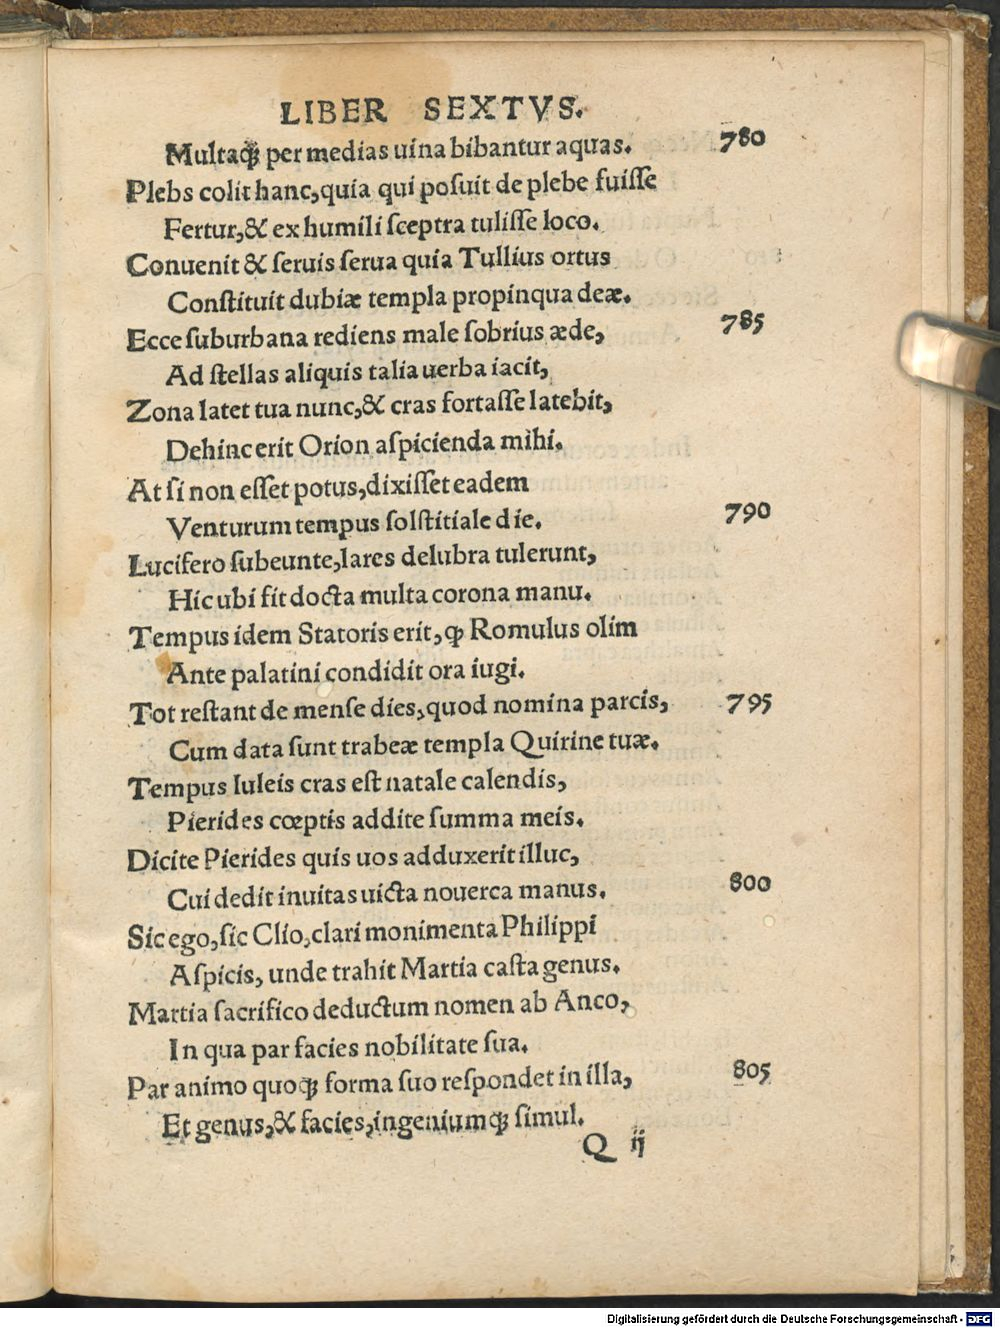 LIBER SEXTVS.
Multaqꝫ per medias uina bibantur aquas. 780
Plebs colit hanc, quia qui posuit de plebe fuisse
Fertur, & ex humili sceptra tulisse loco.
Conuenit & seruis serua quia Tullius ortus
Constituit dubiæ templa propinqua deæ.
Ecce suburbana rediens male sobrius æde, 785
Ad stellas aliquis talia uerba iacit,
Zona latet tua nunc, & cras fortasse latebit,
Dehinc erit Orion aspicienda mihi.
At si non esset potus, dixisset eadem
Venturum tempus solstitiale die. 790
Lucifero subeunte, lares delubra tulerunt,
Hic ubi fit docta multa corona manu.
Tempus idem Statoris erit, ꝙ Romulus olim
Ante palatini condidit ora iugi.
Tot restant de mense dies, quod nomina parcis, 795
Cum data sunt trabeæ templa Quirine tuæ.
Tempus Iuleis cras est natale calendis,
Pierides cœptis addite summa meis.
Dicite Pierides quis uos adduxerit illuc,
Cui dedit inuitas uicta nouerca manus. 800
Sic ego, sic Clio, clari monimenta Philippi
Aspicis, unde trahit Martia casta genus.
Martia sacrifico deductum nomen ab Anco,
In qua par facies nobilitate sua.
Par animo quoqꝫ forma suo respondet in illa, 805
Et genus, & facies, ingeniumqꝫ simul.
Q ij
Digitalisierung gefördert durch die Deutsche Forschungsgemeinschaft - DFG